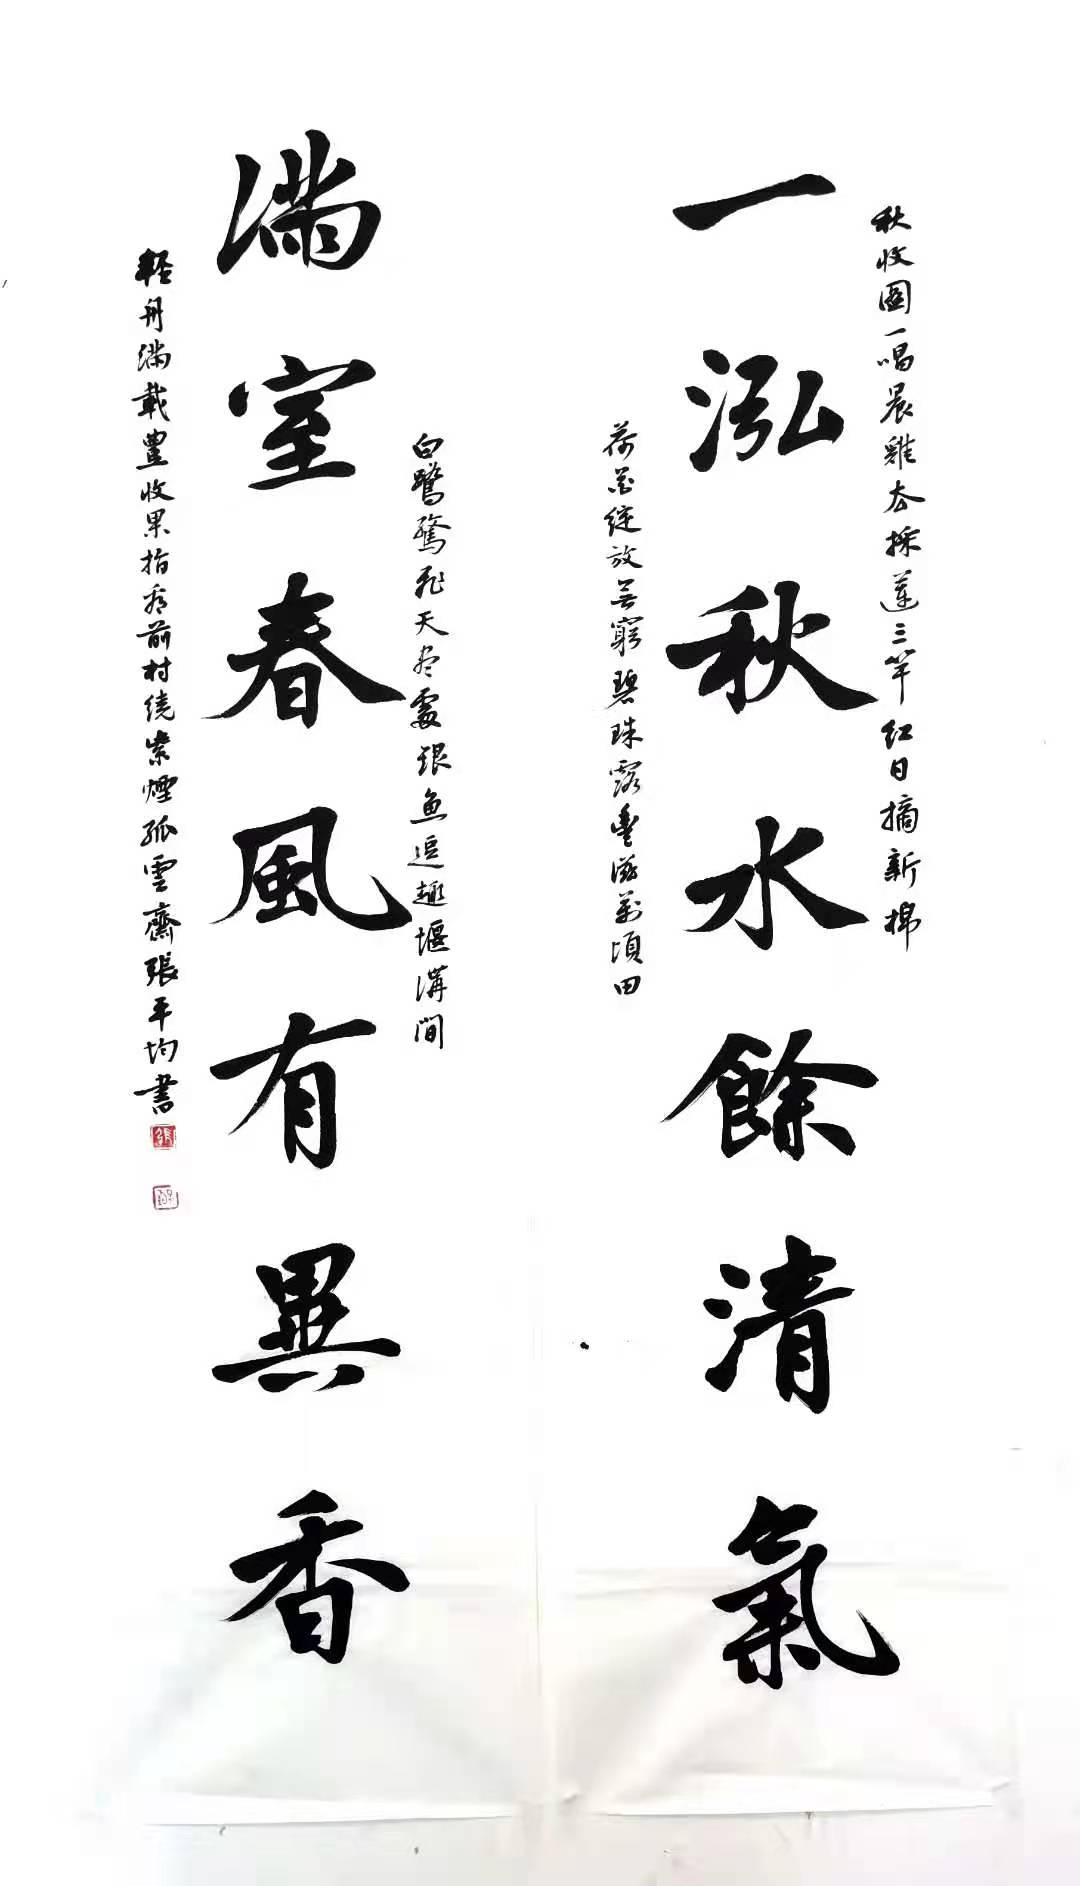 秋收圖一唱晨雞去採蓮三竿紅日摘新棉
一泓秋水餘清氣
荷花綻放無窮碧珠露豐滋萬頃田
白鷺驚飛天盡處銀魚追趣堰溝間
滿室春風有異香
輕舟滿載豐收果指看前村繞紫煙孤雲齋張平均書